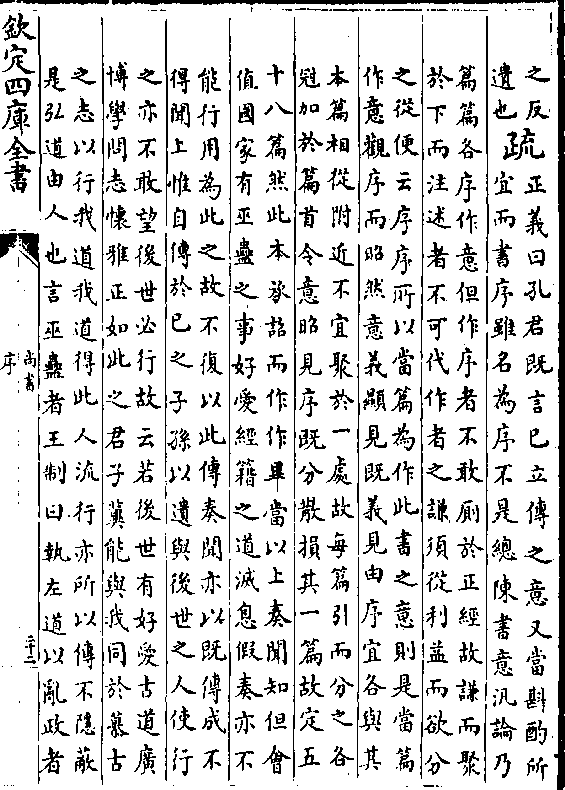 之反
遺也
疏
正義曰孔君既言已立傳之意又當斟酌所
宜而書序雖名為序不是總陳書意汎論乃
篇篇各序作意但作序者不敢厠於正經故謙而聚
於下而注述者不可代作者之謙須從利益而欲分
之從便云序序所以當篇為作此書之意則是當篇
作意觀序而昭然意義顯見既義見由序宜各與其
本篇相從附近不宜聚於一處故每篇引而分之各
冠加於篇首令意昭見序既分散損其一篇故定五
十八篇然此本承詔而作作畢當以上奏聞知但會
值國家有巫蠱之事好愛經籍之道滅息假奏亦不
能行用為此之故不復以此傳奏聞亦以既傳成不
得聞上惟自傳於已之子孫以遺與後世之人使行
之亦不敢望後世必行故云若後世有好愛古道廣
博學問志懷雅正如此之君子冀能與我同於慕古
之志以行我道我道得此人流行亦所以傳不隱蔽
是弘道由人也言巫蠱者王制曰執左道以亂政者
欽定四庫全書
尚書
序